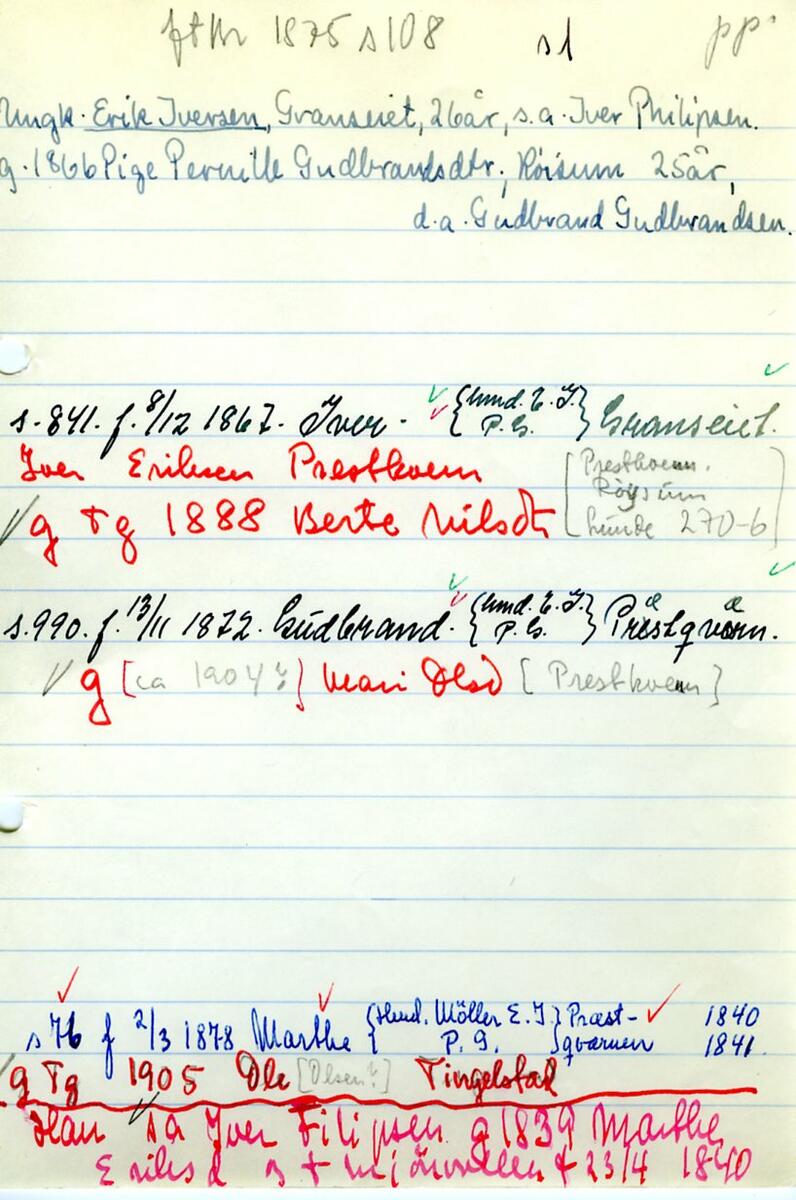 ftNr 1875 s108 s1 pp
Ungk. Erik Iversen, Granseiet, 26år, s.a. Iver Philipsen.
g. 1866 Pige Pernille Gudbrandsdtr., Röisum 25år,
d.a. Gudbrand Gudbrandsen.
s. 841. f. 8/12 1867. Iver. {Hmd. E. I. P. G.} Granseiet.
Iver Eriksen Prestkvern [Prestkvern.
Röysum
g Tg 1888 Berte Nilsdtr hunde 270-6]
s. 990. f. 13/11 1872. Gudbrand. {Hmd. E. I. P. G.} Præstqværn.
g [ca 1904?] Mari Olsd [Prestkvern]
s 76 f 2/3 1878 Marthe {Hmd. Möller E. I} Præst- 1840
P. G. qvarnen 1841.
g Tg 1905 Ole [Olsen?] Tingelstad
Han sa Iver Filipsen g 1839 Marthe
Eriksd + 23/4 1840